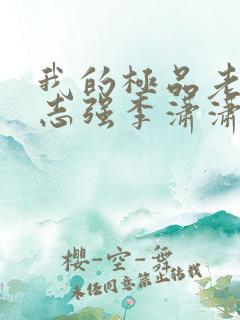 我的極品老
志强李潇潇
櫻-空-舞
未经同意禁止转载